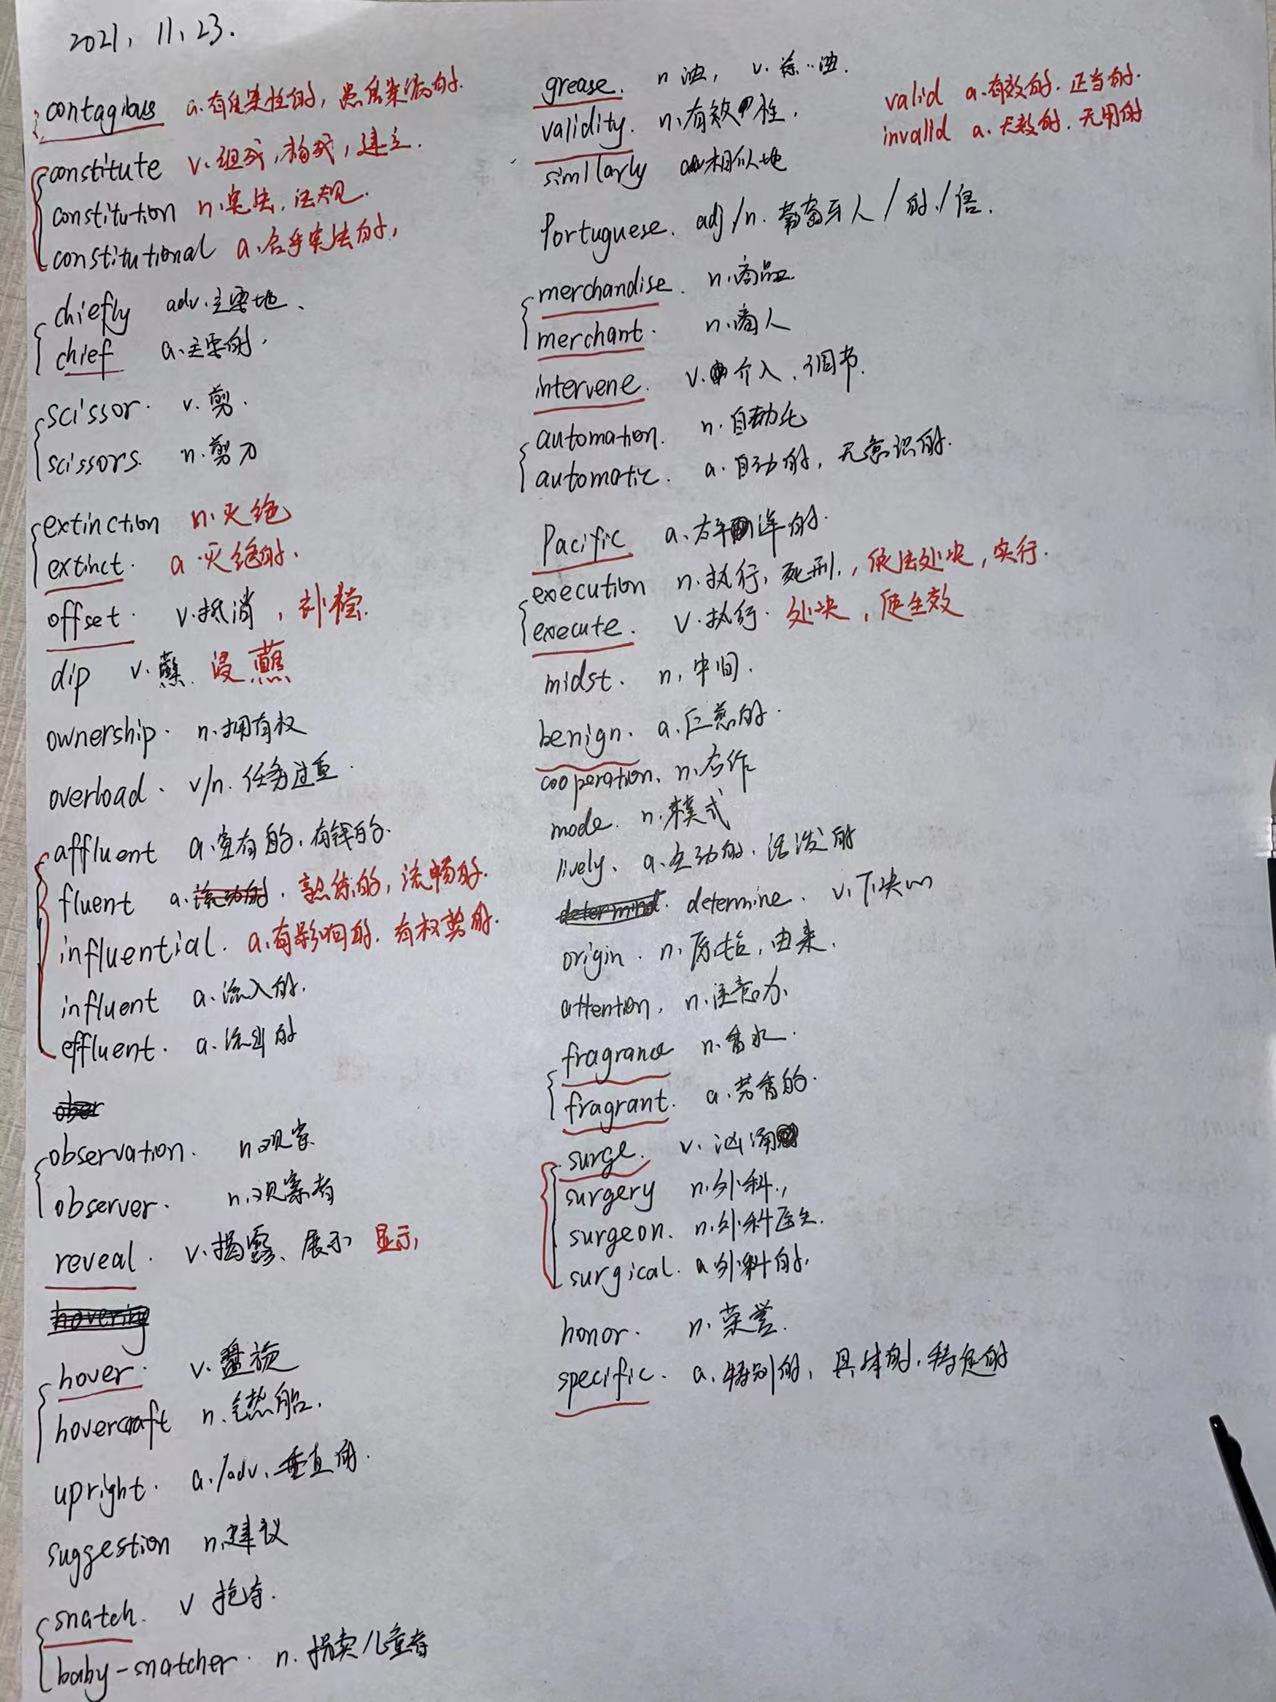 2021.11.23.
contagious a.有传染性的,患传染病的.
constitute v.组成,构成,建立.
constitution n.宪法.法规.
constitutional a.合乎宪法的,
chiefly adv.主要地.
chief a.主要的.
scissor. v.剪.
scissors. n.剪刀
extinction n.灭绝
extinct. a.灭绝的.
offset. v.抵消,补偿.
dip v.蘸.浸蘸
ownership. n.拥有权
overload. v/n.任务过重.
affluent a.富有的,有钱的.
fluent a.流动的.熟练的,流畅的.
influential. a.有影响的.有权势的.
influent a.流入的.
effluent. a.流出的
obser
observation. n观察
observer. n.观察者
reveal. v.揭露、展示 显示,
hovering
hover. v.盘旋
hovercraft n.气垫船.
upright. a./adv.垂直的.
suggestion n.建议
snatch. v 抢夺.
baby-snatcher. n.拐卖儿童者
grease. n油, v.涂油.
validity. n.有效性,
valid a.有效的.正当的.
invalid a.无效的.无用的
similarly ad相似地
Portuguese. adj/n.葡萄牙人/的/语.
merchandise. n.商品.
merchant. n.商人
intervene. v.介入、调节.
automation. n.自动化
automatic. a.自动的,无意识的.
Pacific a.太平洋的.
execution n.执行,死刑.,依法处决,实行.
execute. v.执行.处决,使生效
midst. n.中间.
benign. a.仁慈的.
cooperation. n.合作
mode. n.模式
lively. a.生动的,活泼的
determind. determine. v.下决心
origin. n.原始,由来.
attention. n.注意力.
fragrance n.香水.
fragrant. a.芳香的.
surge. v.汹涌
surgery n.外科.,
surgeon. n.外科医生.
surgical. a外科的.
honor. n.荣誉.
specific. a.特别的,具体的,特定的